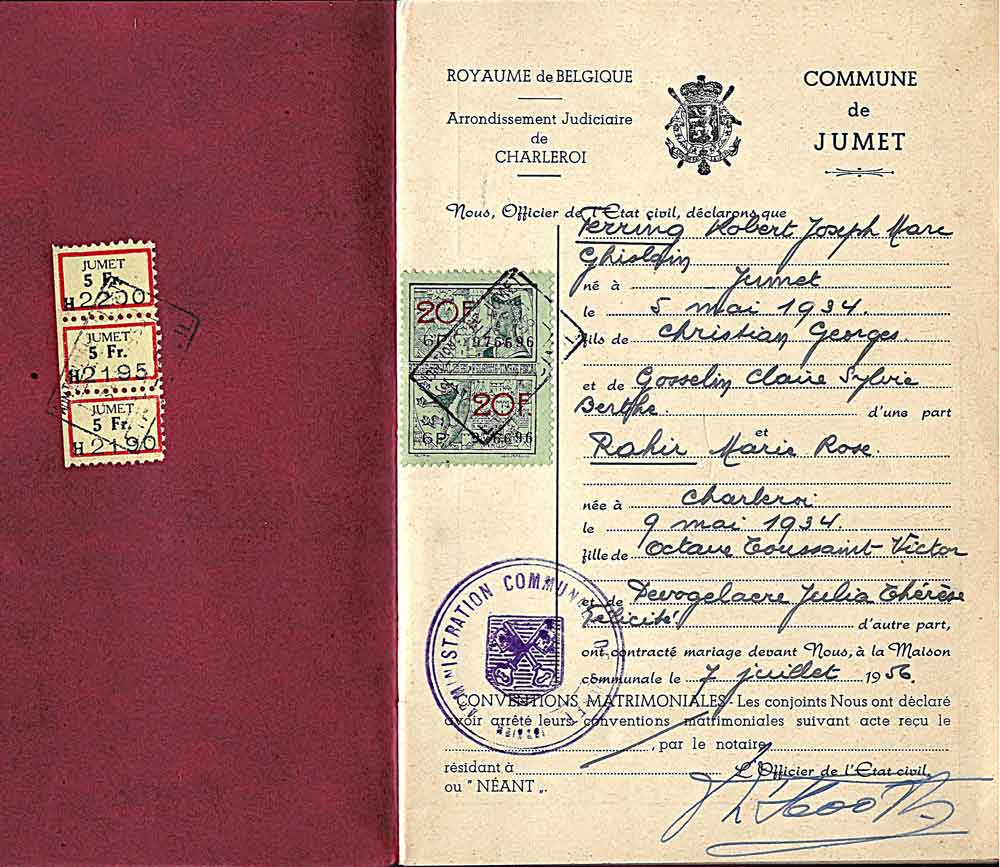 JUMET
5 Fr.
H2200
JUMET
5 Fr.
H2195
JUMET
5 Fr.
H2190
ROYAUME de BELGIQUE
Arrondissement Judiciaire
de
CHARLEROI
COMMUNE
de
JUMET
20F
6P 976696
20F
6P 976696
Nous, Officier de l'Etat civil, déclarons que
Ferring Robert Joseph Marc
Ghislain
né à Jumet
le 5 mai 1934.
fils de Christian Georges.
et de Gosselin Claire Sylvie
Berthe d'une part
et
Rahir Marie Rose.
née à Charleroi
le 9 mai 1934.
fille de Octave Toussaint Victor
et de Devogelaere Julia Thérèse
Félicité d'autre part,
ont contracté mariage devant Nous, à la Maison
communale le 7 juillet 1956.
CONVENTIONS MATRIMONIALES - Les conjoints Nous ont déclaré
avoir arrêté leurs conventions matrimoniales suivant acte reçu le
, par le notaire
résidant à L'Officier de l'Etat civil,
ou "NÉANT".
ADMINISTRATION COMMUNALE DE